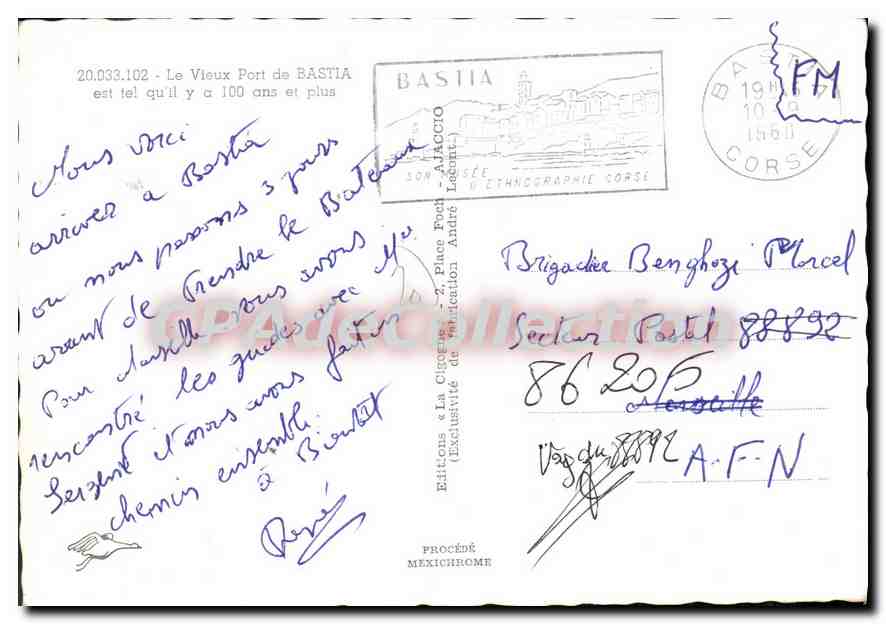 20.033.102 - Le Vieux Port de BASTIA
est tel qu'il y a 100 ans et plus
Nous voici
arriver a Bastia
ou nous passons 3 jours
avant de Prendre le Bateaux
Pour Marseille nous avons
rencontré les guides avec Mr
et nous avons faitun
chemin ensemble.
a Bientôt
René
BASTIA
SON MUSÉE
D'ETHNOGRAPHIE CORSE
BASTIA
19H
10-9
1960
CORSE
FM
Editions « La Cigogne » - 2, Place Foch - AJACCIO
(Exclusivité de fabrication André Leconte)
Brigadier Benghozi Marcel
Secteur Postal 88892
86206
Marseille
Vag du 88892
A-F-N
PROCÉDÉ
MEXICHROME
CPAdeCollection